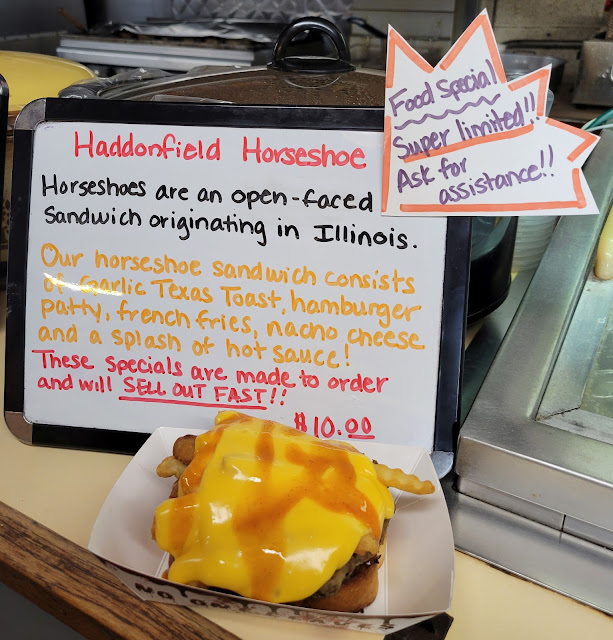 Haddonfield Horseshoe
Horseshoes are an open-faced
sandwich originating in Illinois.
Our horseshoe sandwich consists
of Garlic Texas Toast, hamburger
patty, french fries, nacho cheese
and a splash of hot sauce!
These specials are made to order
and will SELL OUT FAST!!
$10.00
Food Special
Super limited!!
Ask for
assistance!!